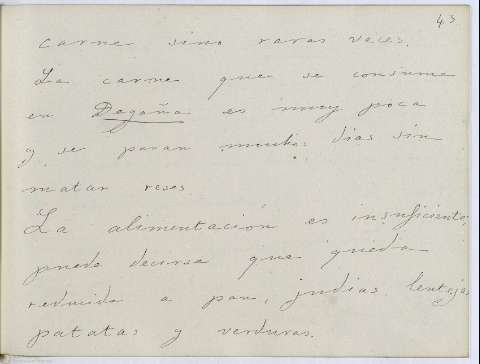 43
carne sino raras veces.
La carne que se consume
en Dagaña es muy poca
y se pasan muchos dias sin
matar reses
La alimentación es insuficiente,
puede decirse que queda
reducida a pan, judias lentejas
patatas y verduras.